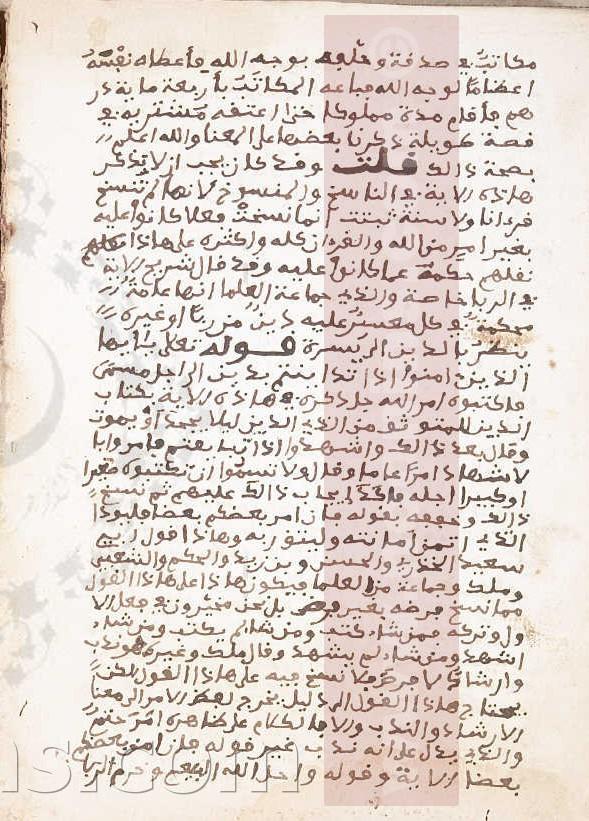 مكاتب في صدقة وخلوه بوجه الله فأعطاه نفسه
اعظاما لوجه الله فباعه المكاتب بأربعة ماية در
هم فأقام مدة مملوكا حتى اعتقه مشتريه في
قصة طويلة ذكرنا بعضها على المعنا والله اعلم
بصحة ذالك قلت وقد كان يجب ان لا تذكر
هاذه الاية في الناسخ والمنسوخ لانها لم تنسخ
قرءانا ولا سنة ثبتت انما نسخت فعلا كانوا عليه
بغير امر من الله والقرءان كله واكثره على هاذا
نقلهم حكمه عما كانوا عليه وقد قال شريح الاية
في الربا خاصة والذي جماعة العلما انها عامة
محكمة في كل معسر عليه دين من ربا او غيره
ينظر بالدين الى يسره قوله تعلى يأيها
الذين ءامنوا اذا تداينتم بدين الى اجل مسمى
فاكتبوه امر الله جل ذكره في هاذه الاية بكتاب
الدين للتوثق من الذي الدين ليلا يجحد او يموت
وقال بعد ذالك واشهدوا اذا تبايعتم فامر وابا
لاشهاد امرا عاما وقال ولا تسموا ان تكتبوه صغيرا
او كبيرا الى اجله فاكد ايجاب ذالك عليهم ثم نسخ
ذالك وخففه بقوله فان امن بعضكم بعضا فليودا
الذي اوتمن امانته وليتق ربه وهاذا قول ابي
سعيد الخدري والحسن وبن زيد والحكم والشعبي
وملك وجماعة من العلما فيكون هاذا على هاذا القول
مما نسخ فرضه بغير فرض بل نحن مخيرون في فعل الا
ول وتركه فمن شاء كتب ومن شا لم يكتب ومن شاء
اشهد ومن شاء لم يشهد وقال ملك وغيره هو ندب
وارشاد لا فرض فلا نسخ فيه على هاذا القول لكن
يحتاج هاذا القول الى دليل يخرج لفظ الامر الى معنا
الارشاد والندب والا فالكلام على ظاهره امر حتم
والذي يدل على انه ندب غير قوله فان امن بعضكم
بعضا الاية وقوله واحل الله البيع وحرم الربا